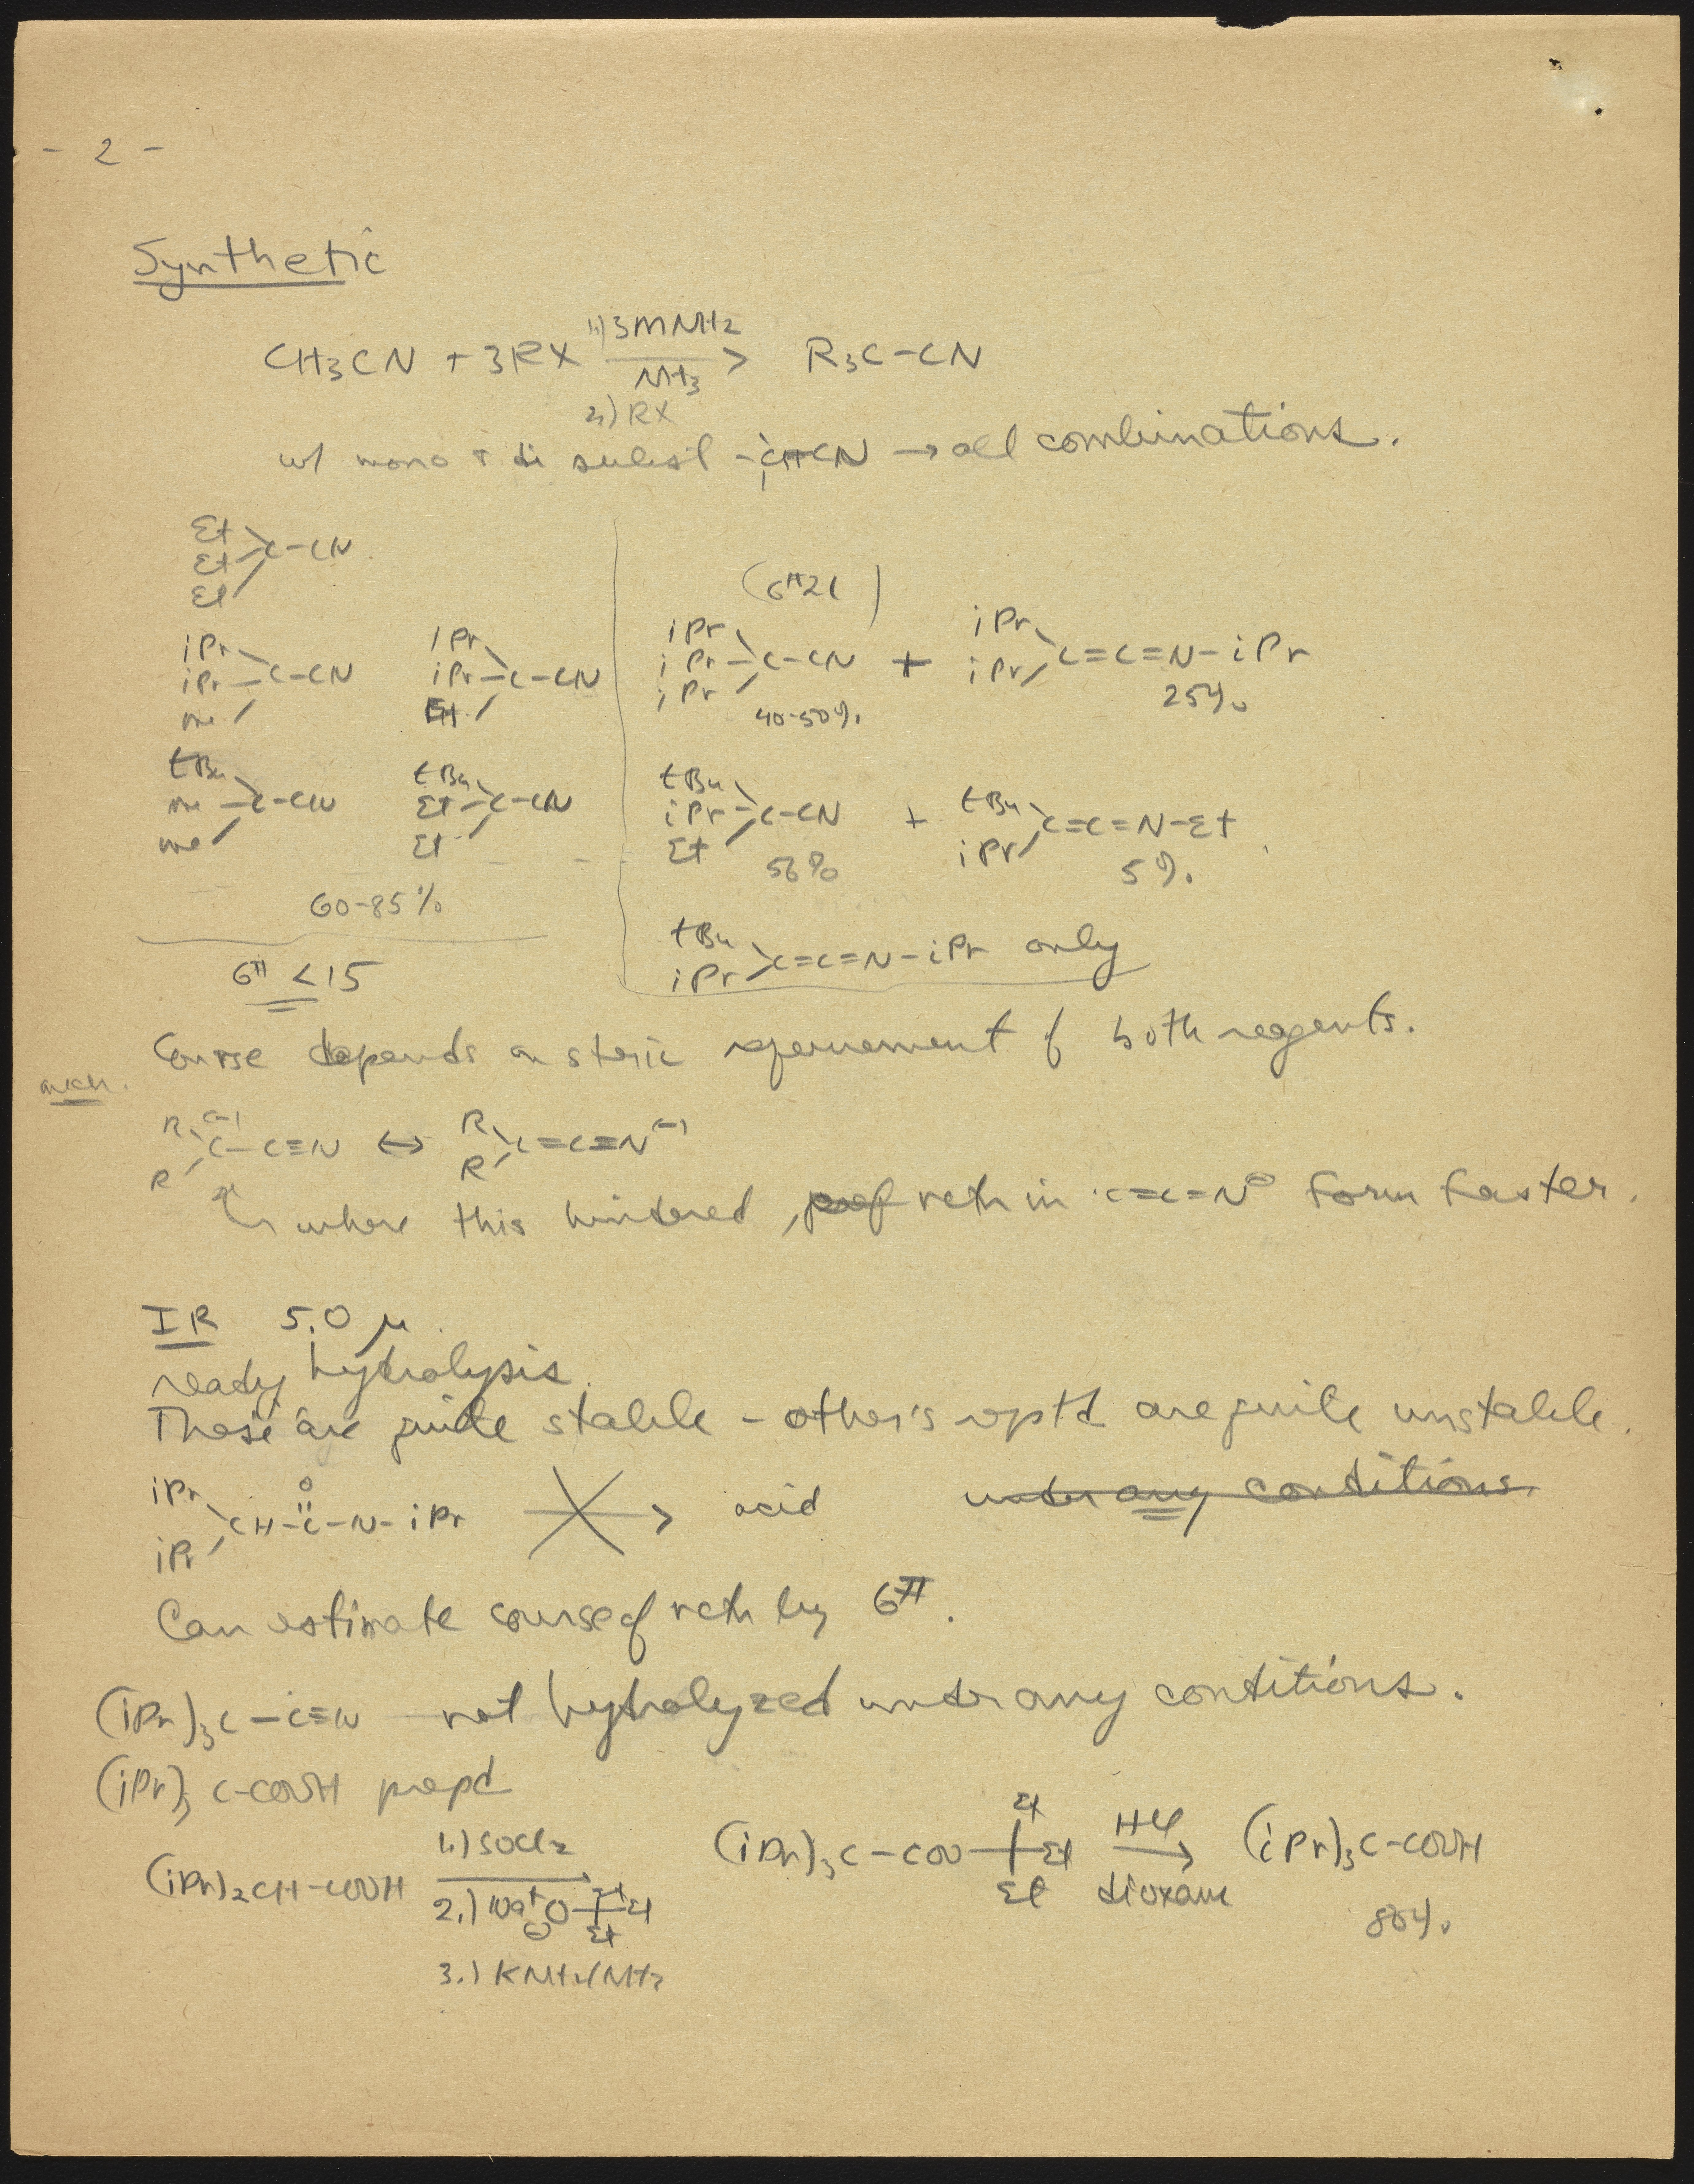 - 2 -
Synthetic
1.) 3MNH2
CH3CN + 3RX → R3C-CN
NH3
2.) RX
w/ mono & di subst -CHCN → all combinations.
Et
Et C-CN
Et
(6# 21)
iPr iPr iPr iPr
iPr C-CN iPr C-CN iPr C-CN + iPr C=C=N-iPr
me Et iPr
40-50% 25%
tBu tBu tBu tBu
me C-CN Et C-CN iPr C-CN + iPr C=C=N-Et
me Et Et
56% 5%
60-85%
tBu
iPr C=C=N-iPr only
6# <15
Course depends on steric of both reagents.
mech.
R (-) R
R C-C≡N ↔ R C=C=N(-)
where this hindered, rctn in C=C=N⊖ form faster.
IR 5.0 μ
ready hydrolysis.
These are quite stable - other's rptd are quite unstable.
iPr O
iPr CH-C-N-iPr → acid under any conditions
Can estimate course of rctn by 6#.
(iPr)3C-C≡N not hydrolyzed under any conditions.
(iPr)3C-COOH prepd
1.) SOCl2
(iPr)2CH-COOH →
2.) Na+ ⊖O Et Et Et
3.) KNH2/NH3
(iPr)3C-COO Et Et Et
HCl
→
dioxane
(iPr)3C-COOH
80%